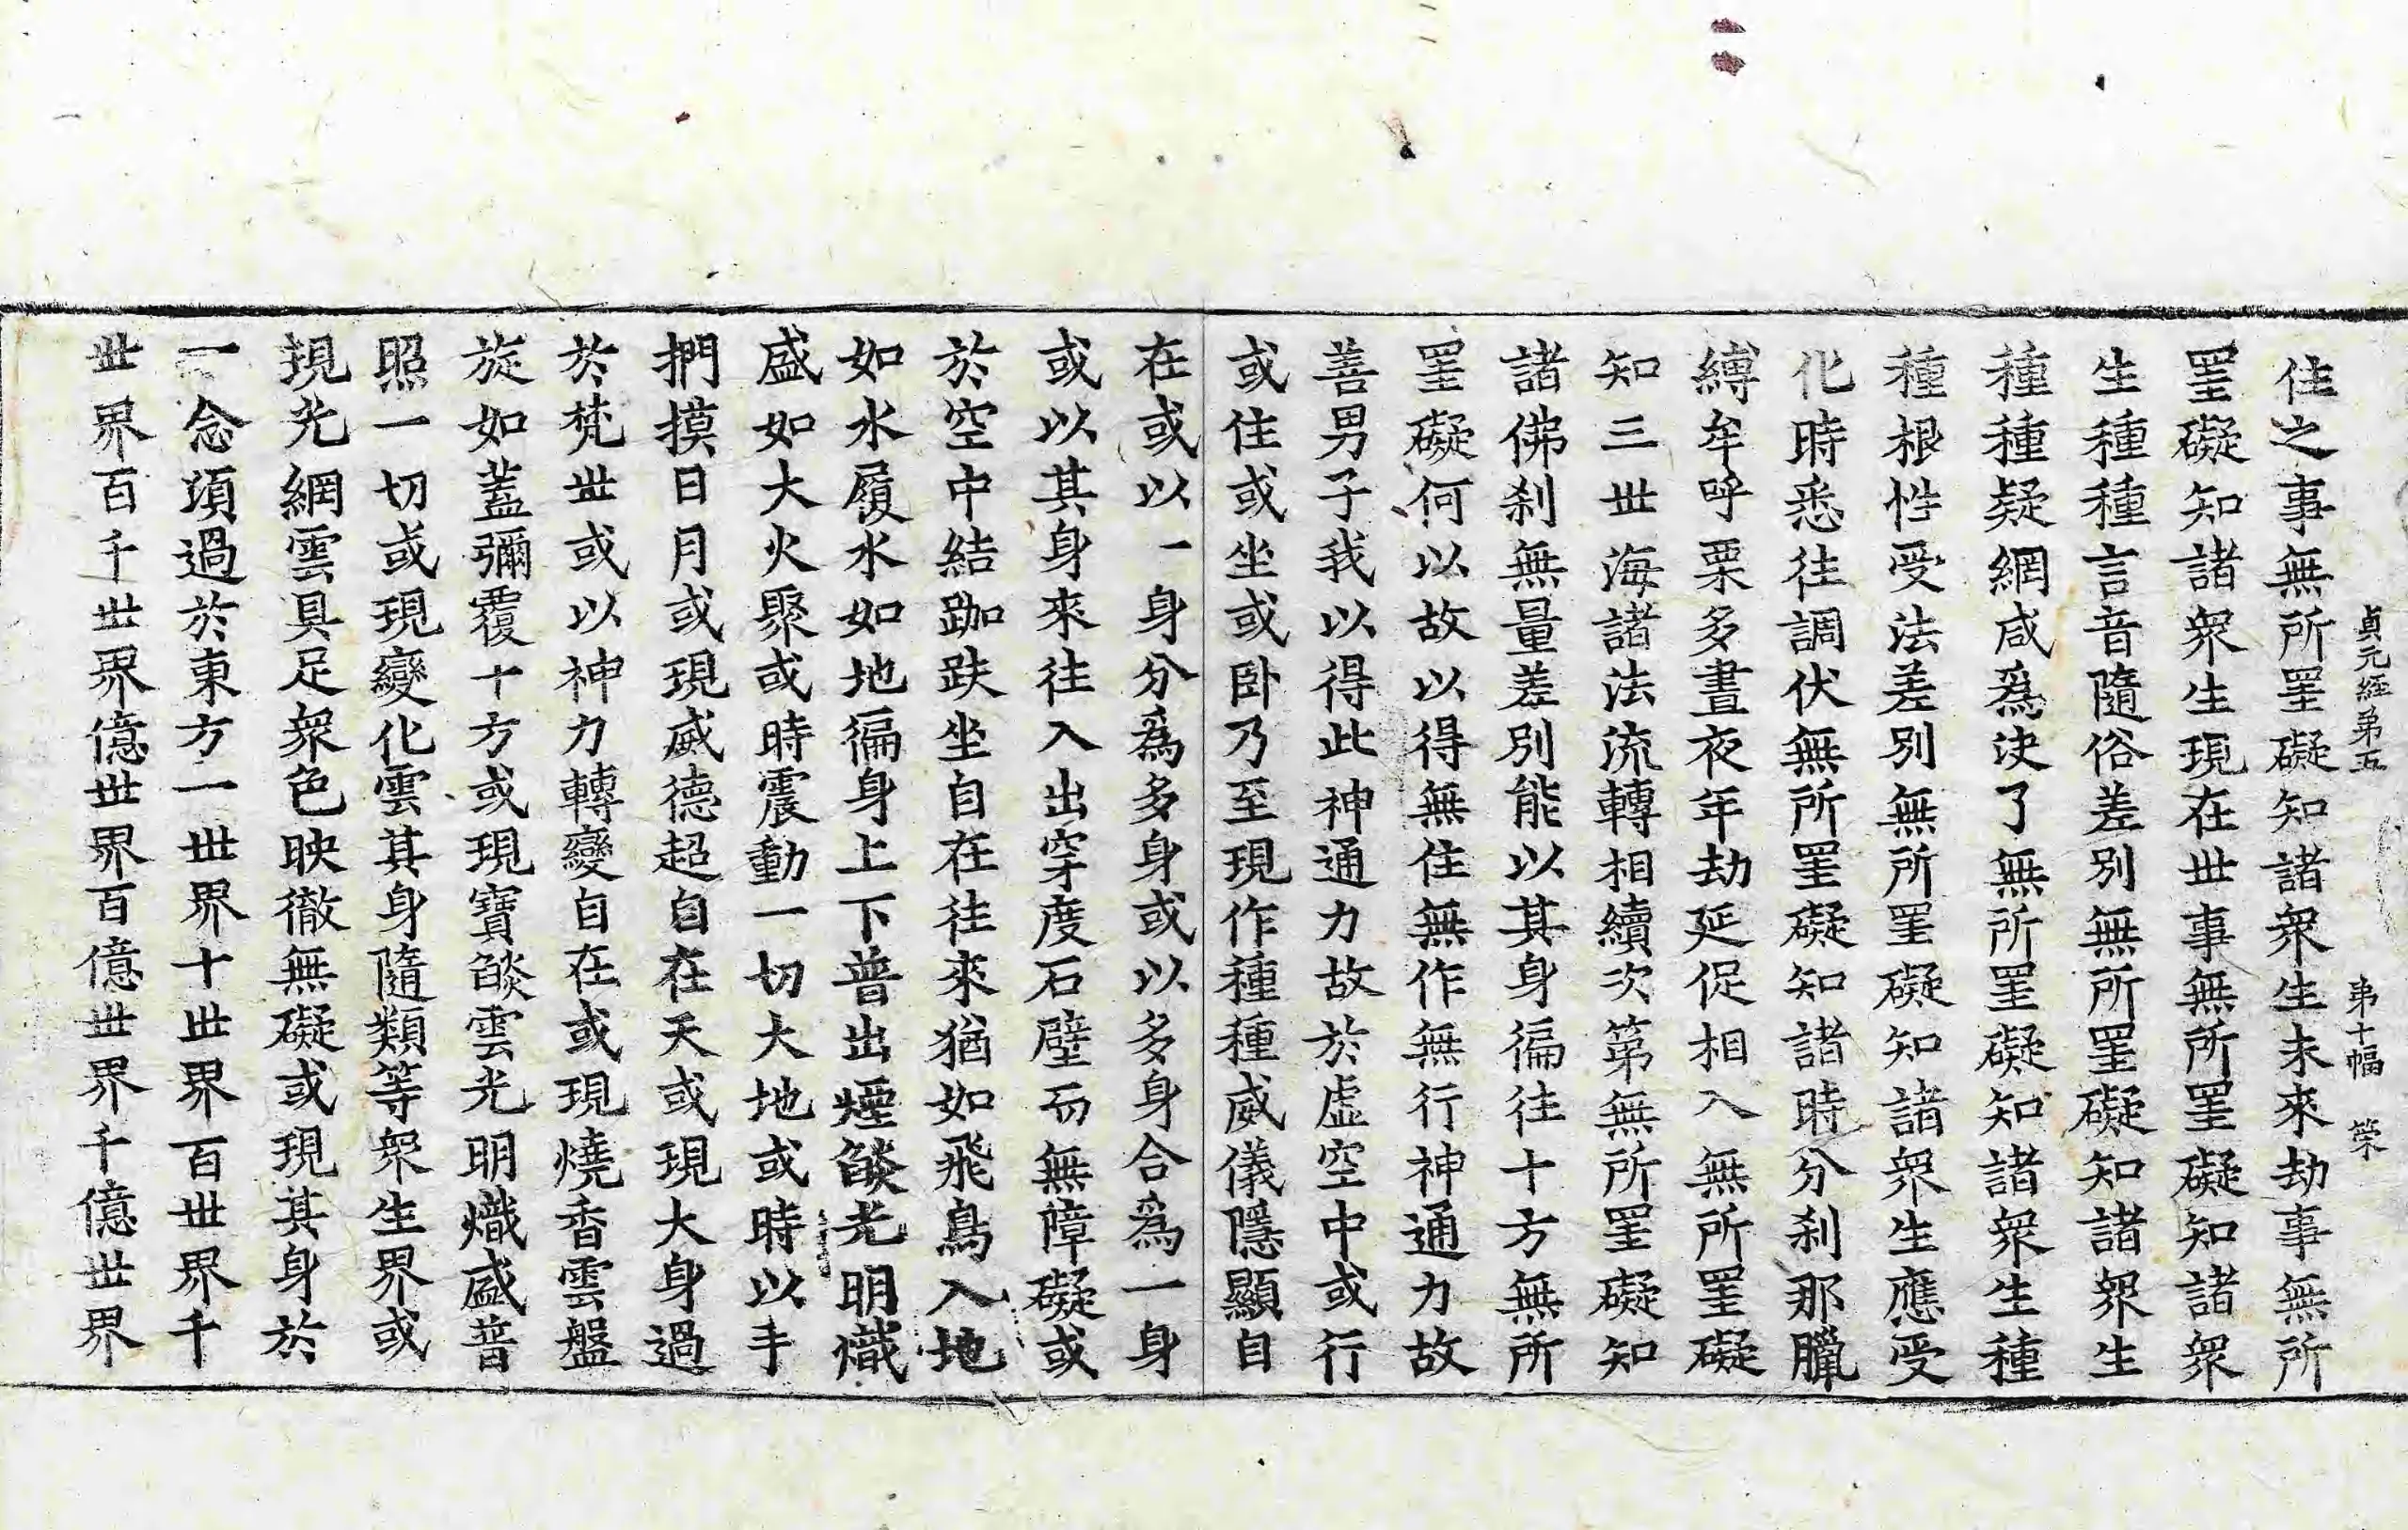 貞元經第五 第十幅 榮
住之事無所罣礙知諸衆生未來劫事無所
罣礙知諸衆生現在世事無所罣礙知諸衆
生種種言音隨俗差別無所罣礙知諸衆生
種種疑網咸爲決了無所罣礙知諸衆生種
種根性受法差別無所罣礙知諸衆生應受
化時悉往調伏無所罣礙知諸時分刹那臘
縛牟呼栗多晝夜年劫延促相入無所罣礙
知三世海諸法流轉相續次第無所罣礙知
諸佛刹無量差別能以其身徧往十方無所
罣礙何以故以得無住無作無行神通力故
善男子我以得此神通力故於虛空中或行
或住或坐或卧乃至現作種種威儀隱顯自
在或以一身分爲多身或以多身合爲一身
或以其身來往入出穿度石壁而無障礙或
於空中結跏趺坐自在往來猶如飛鳥入地
如水履水如地徧身上下普出煙燄光明熾
盛如大火聚或時震動一切大地或時以手
捫摸日月或現威德超自在天或現大身過
於梵世或以神力轉變自在或現燒香雲盤
旋如蓋彌覆十方或現寶燄雲光明熾盛普
照一切或現變化雲其身隨類等衆生界或
現光網雲具足衆色映徹無礙或現其身於
一念項過於東方一世界十世界百世界千
世界百千世界億世界百億世界千億世界